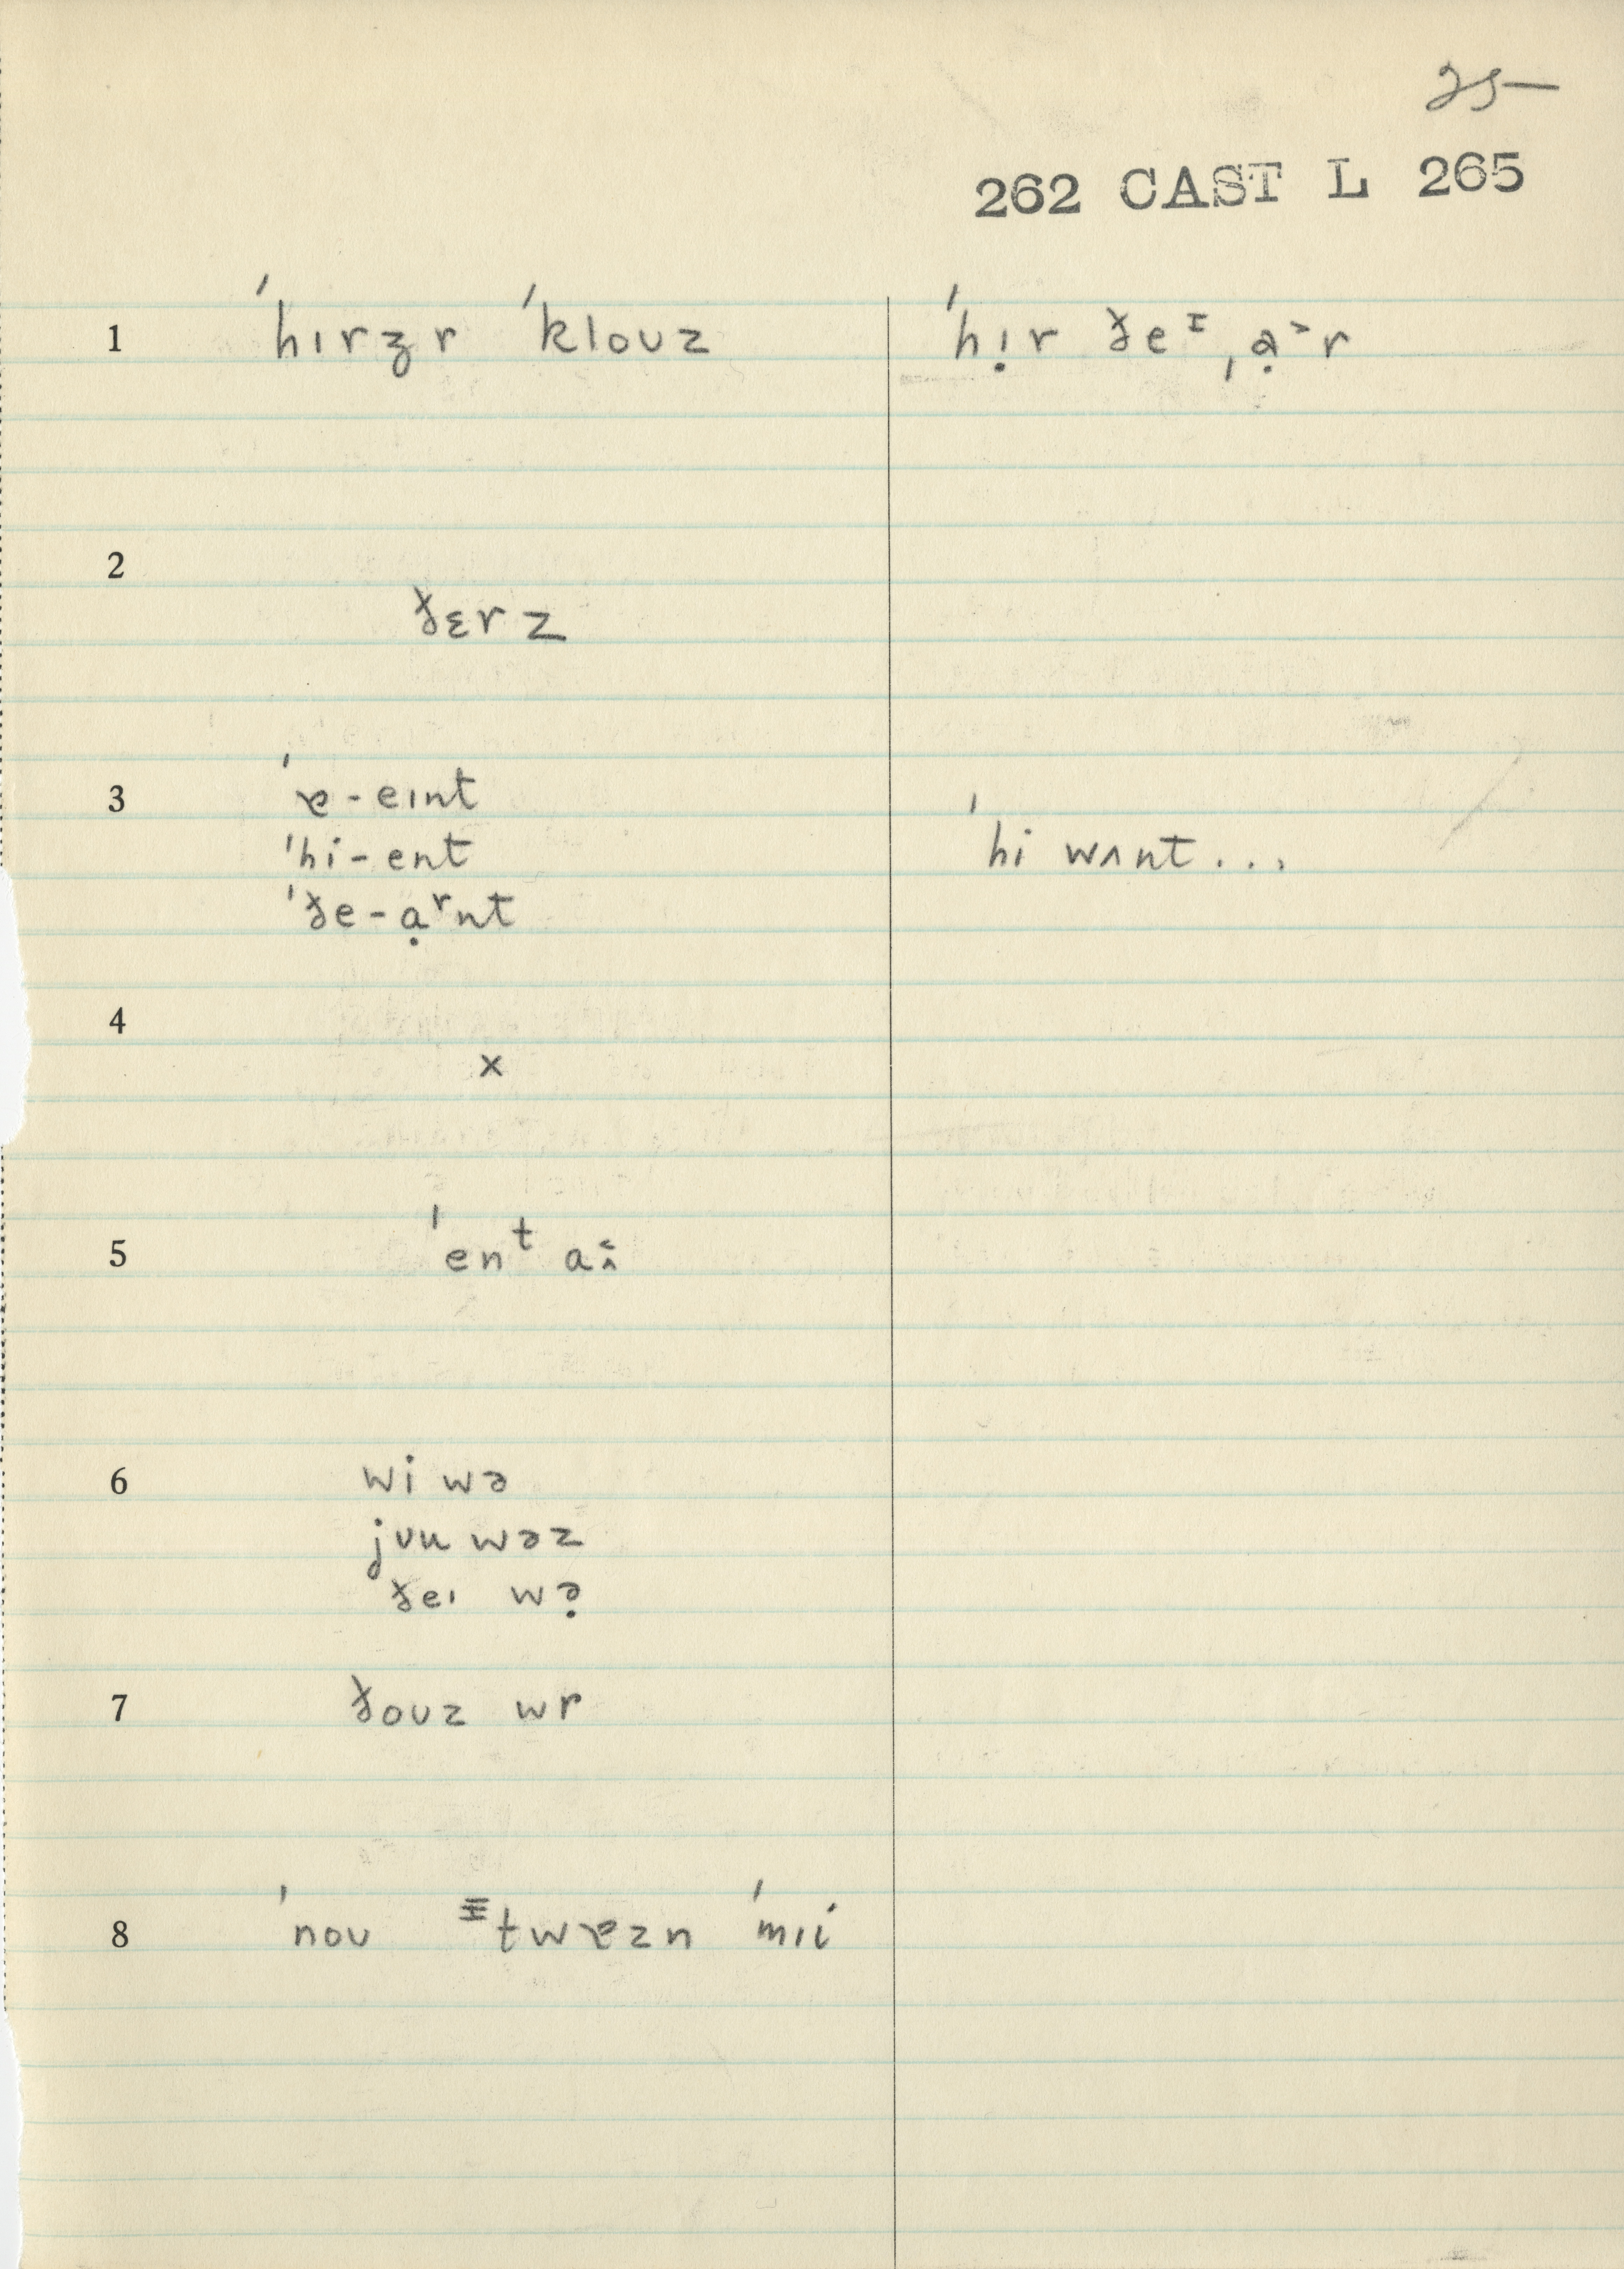 25
262 CAST L 265
1 ˈhɪrzr ˈkloʊz ˈhɪ̣r ðeᶦ ˌạ˃r
2 ðɛrz
3 ˈɐ-eɪnt
ˈhi-ent ˈhi wʌnt...
ˈðe-ạʳnt
4 x
5 ˈenᵗ aɪ
6 wi wə
jʊu wəz
ðeɪ wə̣
7 ðoʊz wr
8 ˈnoʊ ᶦtwɐzn ˈmɪi